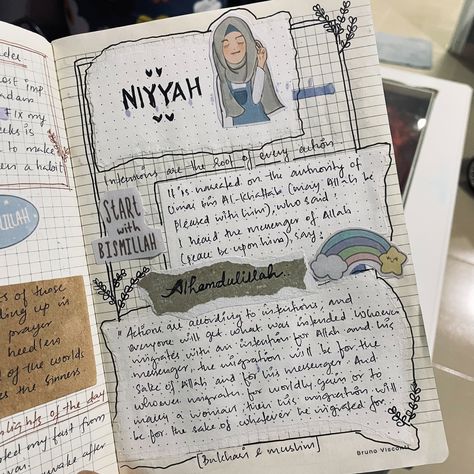 NIYYAH
Intentions are the Root of every action
It is narrated on the authority of
Umar ibn Al-Khattab (may Allah be
pleased with him), who said
I heard the messenger of Allah
(peace be upon him), say:
START
with
BISMILLAH
Alhamdulillah..
"Actions are according to intentions, and
everyone will get what was intended whoever
migrates with an intention for Allah and his
messenger, the migration will be for the
sake of Allah and for his messenger. And
whoever migrates for worldly gain or to
marry a woman, then his migration will
be for the sake of whatever he migrated for.
[Bukhari & muslim]
Bruno Visconti
ost imp
is
to make
a habit
ULILAH
s of those
ding up in
prayer
needless
of the worlds
es the sinners.
hlights of the day
my fast from
was
make after